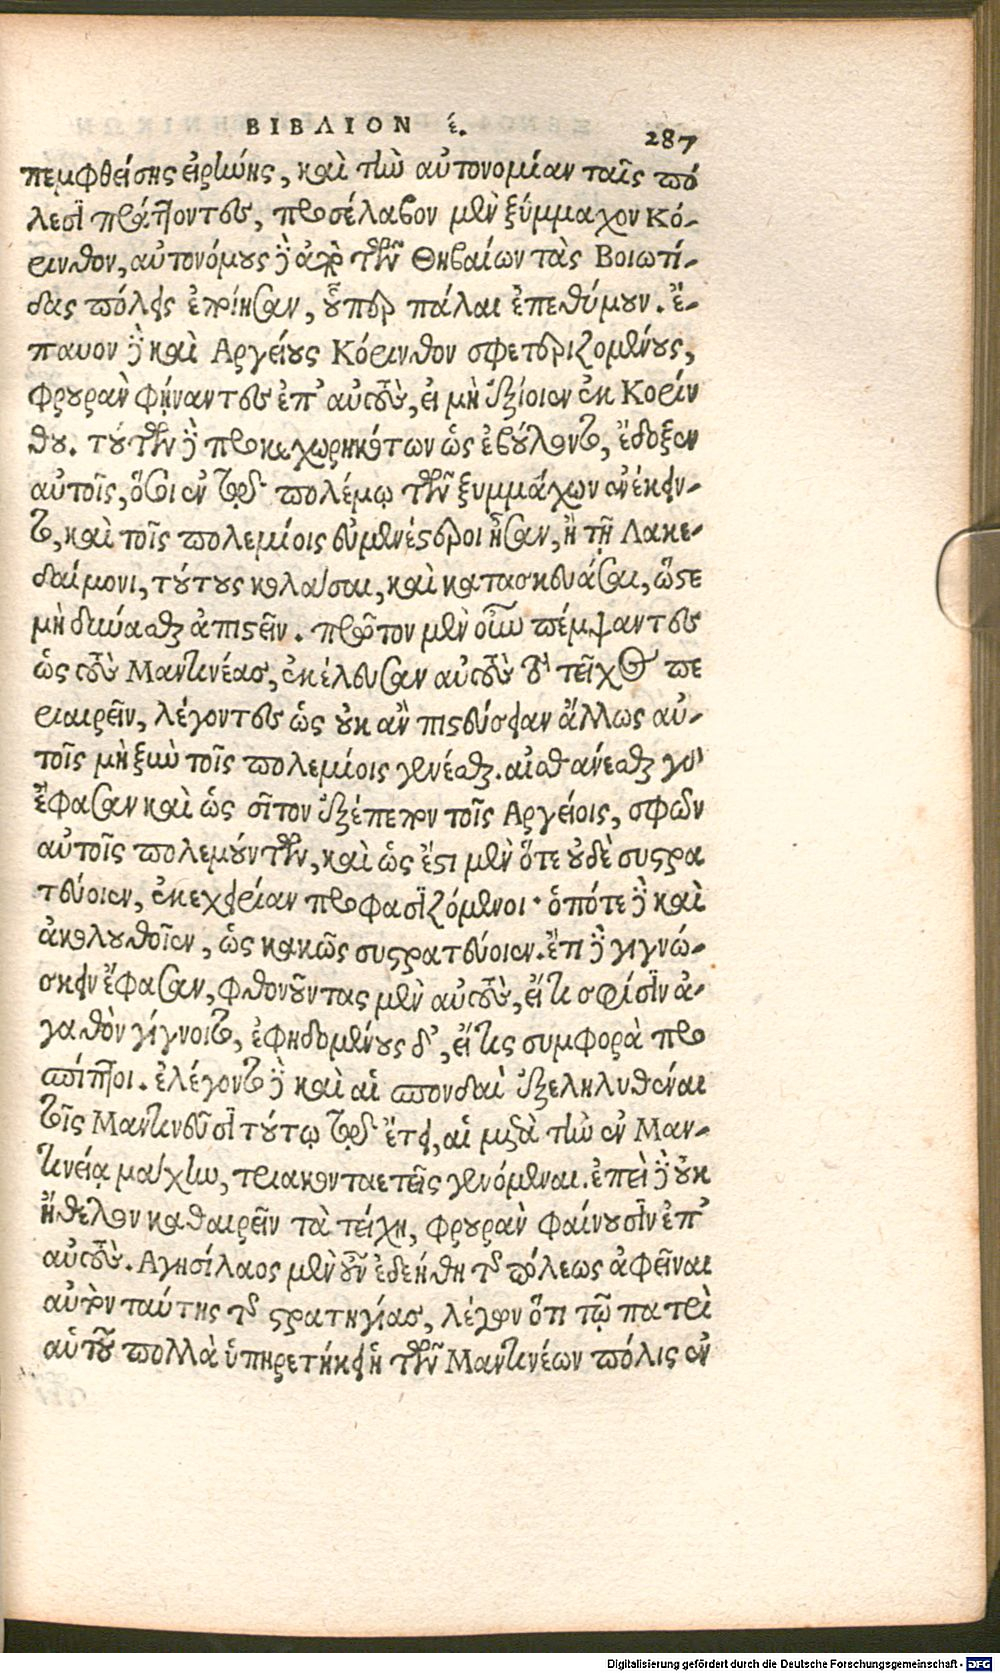 ΒΙΒΛΙΟΝ έ.
287
πεμφθείσης εἰρήνης, καὶ τὴν αὐτονομίαν ταῖς πό
λεσι πράττοντες, προσέλαβον μὲν ξύμμαχον Κό-
ρινθον, αὐτονόμους δὲ ἀπὸ τῶν Θηβαίων τὰς Βοιωτί-
δας πόλεις ἐποίησαν, οὗπερ πάλαι ἐπεθύμουν. ἔ-
παυον δὲ καὶ Αργείους Κόρινθον σφετεριζομένους,
φρουρὰν φήναντες ἐπ' αὐτοὺς, εἰ μὴ ἐξίοιεν ἐκ Κορίν
θου. τούτων δὲ προκεχωρηκότων ὡς ἐβούλοντο, ἔδοξεν
αὐτοῖς, ὅσοι ἐν τῷ πολέμῳ τῶν ξυμμάχων ἐνέκειν-
το, καὶ τοῖς πολεμίοις εὐμενέστεροι ἦσαν, ἢ τῇ Λακε-
δαίμονι, τούτους κολάσαι, καὶ κατασκευάσαι, ὥστε
μὴ δύνασθαι ἀπιστεῖν. πρῶτον μὲν οὖν πέμψαντες
ὡς τοὺς Μαντινέας, ἐκέλευσαν αὐτοὺς τὸ τεῖχος πε
ριαιρεῖν, λέγοντες ὡς οὐκ ἂν πιστεύσειαν ἄλλως αὐ-
τοῖς μὴ ξὺν τοῖς πολεμίοις γενέσθαι. αἰσθάνεσθαι γὰρ
ἔφασαν καὶ ὡς σῖτον ἐξέπεμπον τοῖς Αργείοις, σφῶν
αὐτοῖς πολεμούντων, καὶ ὡς ἔστι μὲν ὅτε οὐδὲ συστρα
τεύοιεν, ἐκεχειρίαν προφασιζόμενοι· ὁπότε δὲ καὶ
ἀκολουθοῖεν, ὡς κακῶς συστρατεύοιεν. ἔτι δὲ γιγνώ-
σκειν ἔφασαν, φθονοῦντας μὲν αὐτοὺς, εἴ τι σφίσιν ἀ-
γαθὸν γίγνοιτο, ἐφηδομένους δ', εἴ τις συμφορὰ προ
σπίπτοι. ἐλέγοντο δὲ καὶ αἱ σπονδαὶ ἐξεληλυθέναι
τοῖς Μαντινεῦσι τούτῳ τῷ ἔτει, αἱ μετὰ τὴν ἐν Μαν-
τινείᾳ μάχην, τριακονταετεῖς γενόμεναι. ἐπεὶ δὲ οὐκ
ἤθελον καθαιρεῖν τὰ τείχη, φρουρὰν φαίνουσιν ἐπ'
αὐτούς. Αγησίλαος μὲν οὖν ἐδεήθη τῆς πόλεως ἀφεῖναι
αὐτὸν ταύτης τῆς στρατηγίας, λέγων ὅτι τῷ πατρὶ
αὑτοῦ πολλὰ ὑπηρετήκει ἡ τῶν Μαντινέων πόλις ἐν
Digitalisierung gefördert durch die Deutsche Forschungsgemeinschaft - DFG